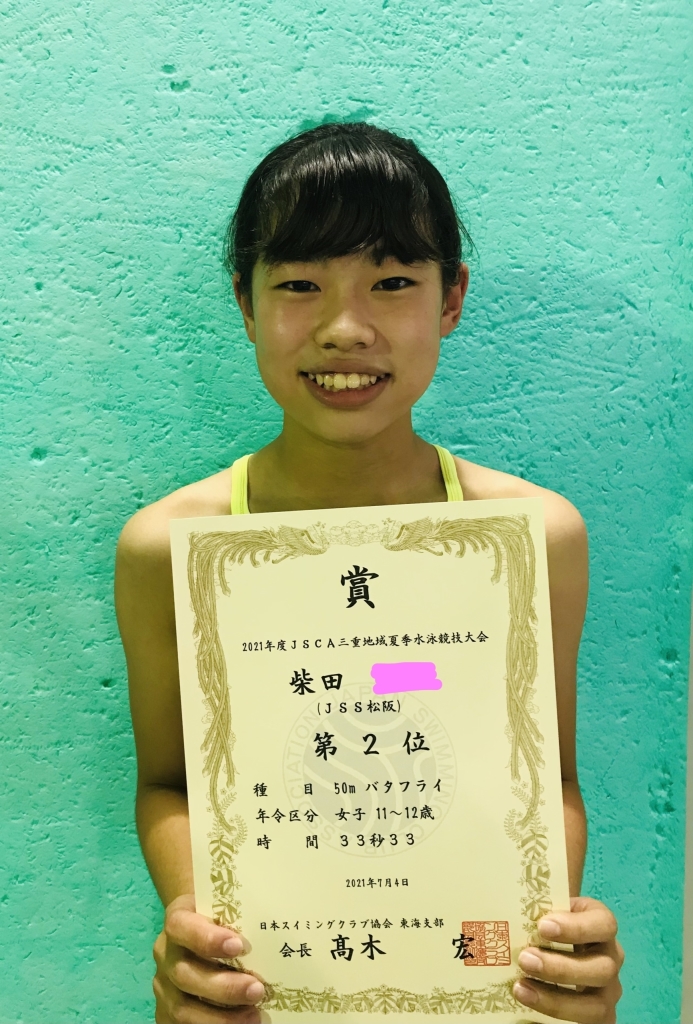 賞
2021年度JSCA三重地域夏季水泳競技大会
柴田
(JSS松阪)
第 2 位
種 目 50m バタフライ
年令区分 女子 11～12歳
時 間 33秒33
2021年7月4日
日本スイミングクラブ協会 東海支部
会長 髙木 宏